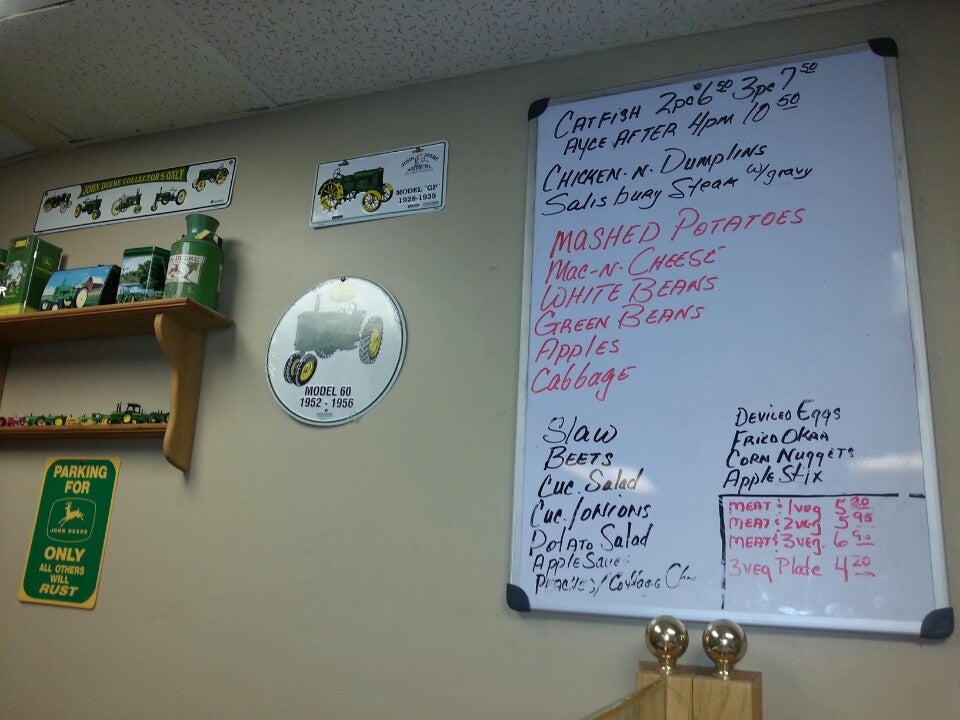 JOHN DEERE COLLECTOR'S ONLY
JOHN DEERE
MODEL "GP"
1928-1935
MODEL 60
1952 - 1956
PARKING
FOR
JOHN DEERE
ONLY
ALL OTHERS
WILL
RUST
CATFISH 2pc $6 50 3pc 7 50
AYCE AFTER 4pm 10 50
CHICKEN-N-DUMPLINS
Salisbury Steak w/gravy
MASHED POTATOES
MAC-N-CHEESE
WHITE BEANS
GREEN BEANS
Apples
Cabbage
Slaw
BEETS
Cuc. Salad
Cuc./ONIONS
Potato Salad
Apple Sauce
Peaches/Cottage Che
DEVILED Eggs
FRIED OKRA
CORN NUGGETS
Apple Stix
MEAT & 1 veg 5 20
MEAT & 2 veg 5 95
MEAT & 3 veg. 6 90
3 veg Plate 4 20